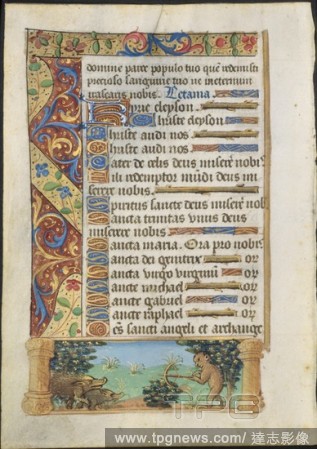 domine parce populo tuo quē redemisti
precioso sanguine tuo ne ineternum
irascaris nobis. Letania.
Kyrie eleyson.
Christe eleyson
Christe audi nos.
Christe audi nos.
Pater de celis deus miserē nobꝭ
Fili redemptor mūdi deus mi
serere nobis.
Spiritus sancte deus miserē nob
Sancta trinitas unus deus
miserere nobis
Sancta maria. Ora pro nobꝭ
Sancta dei genitrix or
Sancta virgo virginū or
Sancte michael or
Sancte gabriel or
Sancte raphael or
Oēs sancti angeli et archange
TPG
www.tpgnews.com/ 達志影像